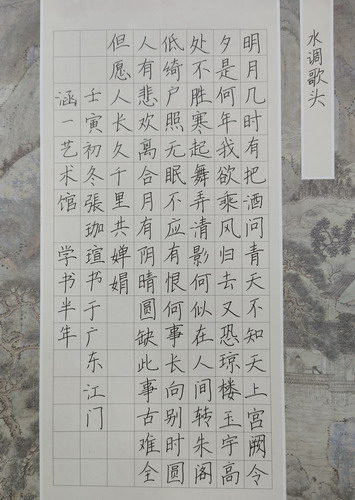 水调歌头
明月几时有把酒问青天不知天上宫阙今
夕是何年我欲乘风归去又恐琼楼玉宇高
处不胜寒起舞弄清影何似在人间转朱阁
低绮户照无眠不应有恨何事长向别时圆
人有悲欢离合月有阴晴圆缺此事古难全
但愿人长久千里共婵娟
壬寅初冬張珈瑄书于广东江门
涵一艺术馆 学书半年